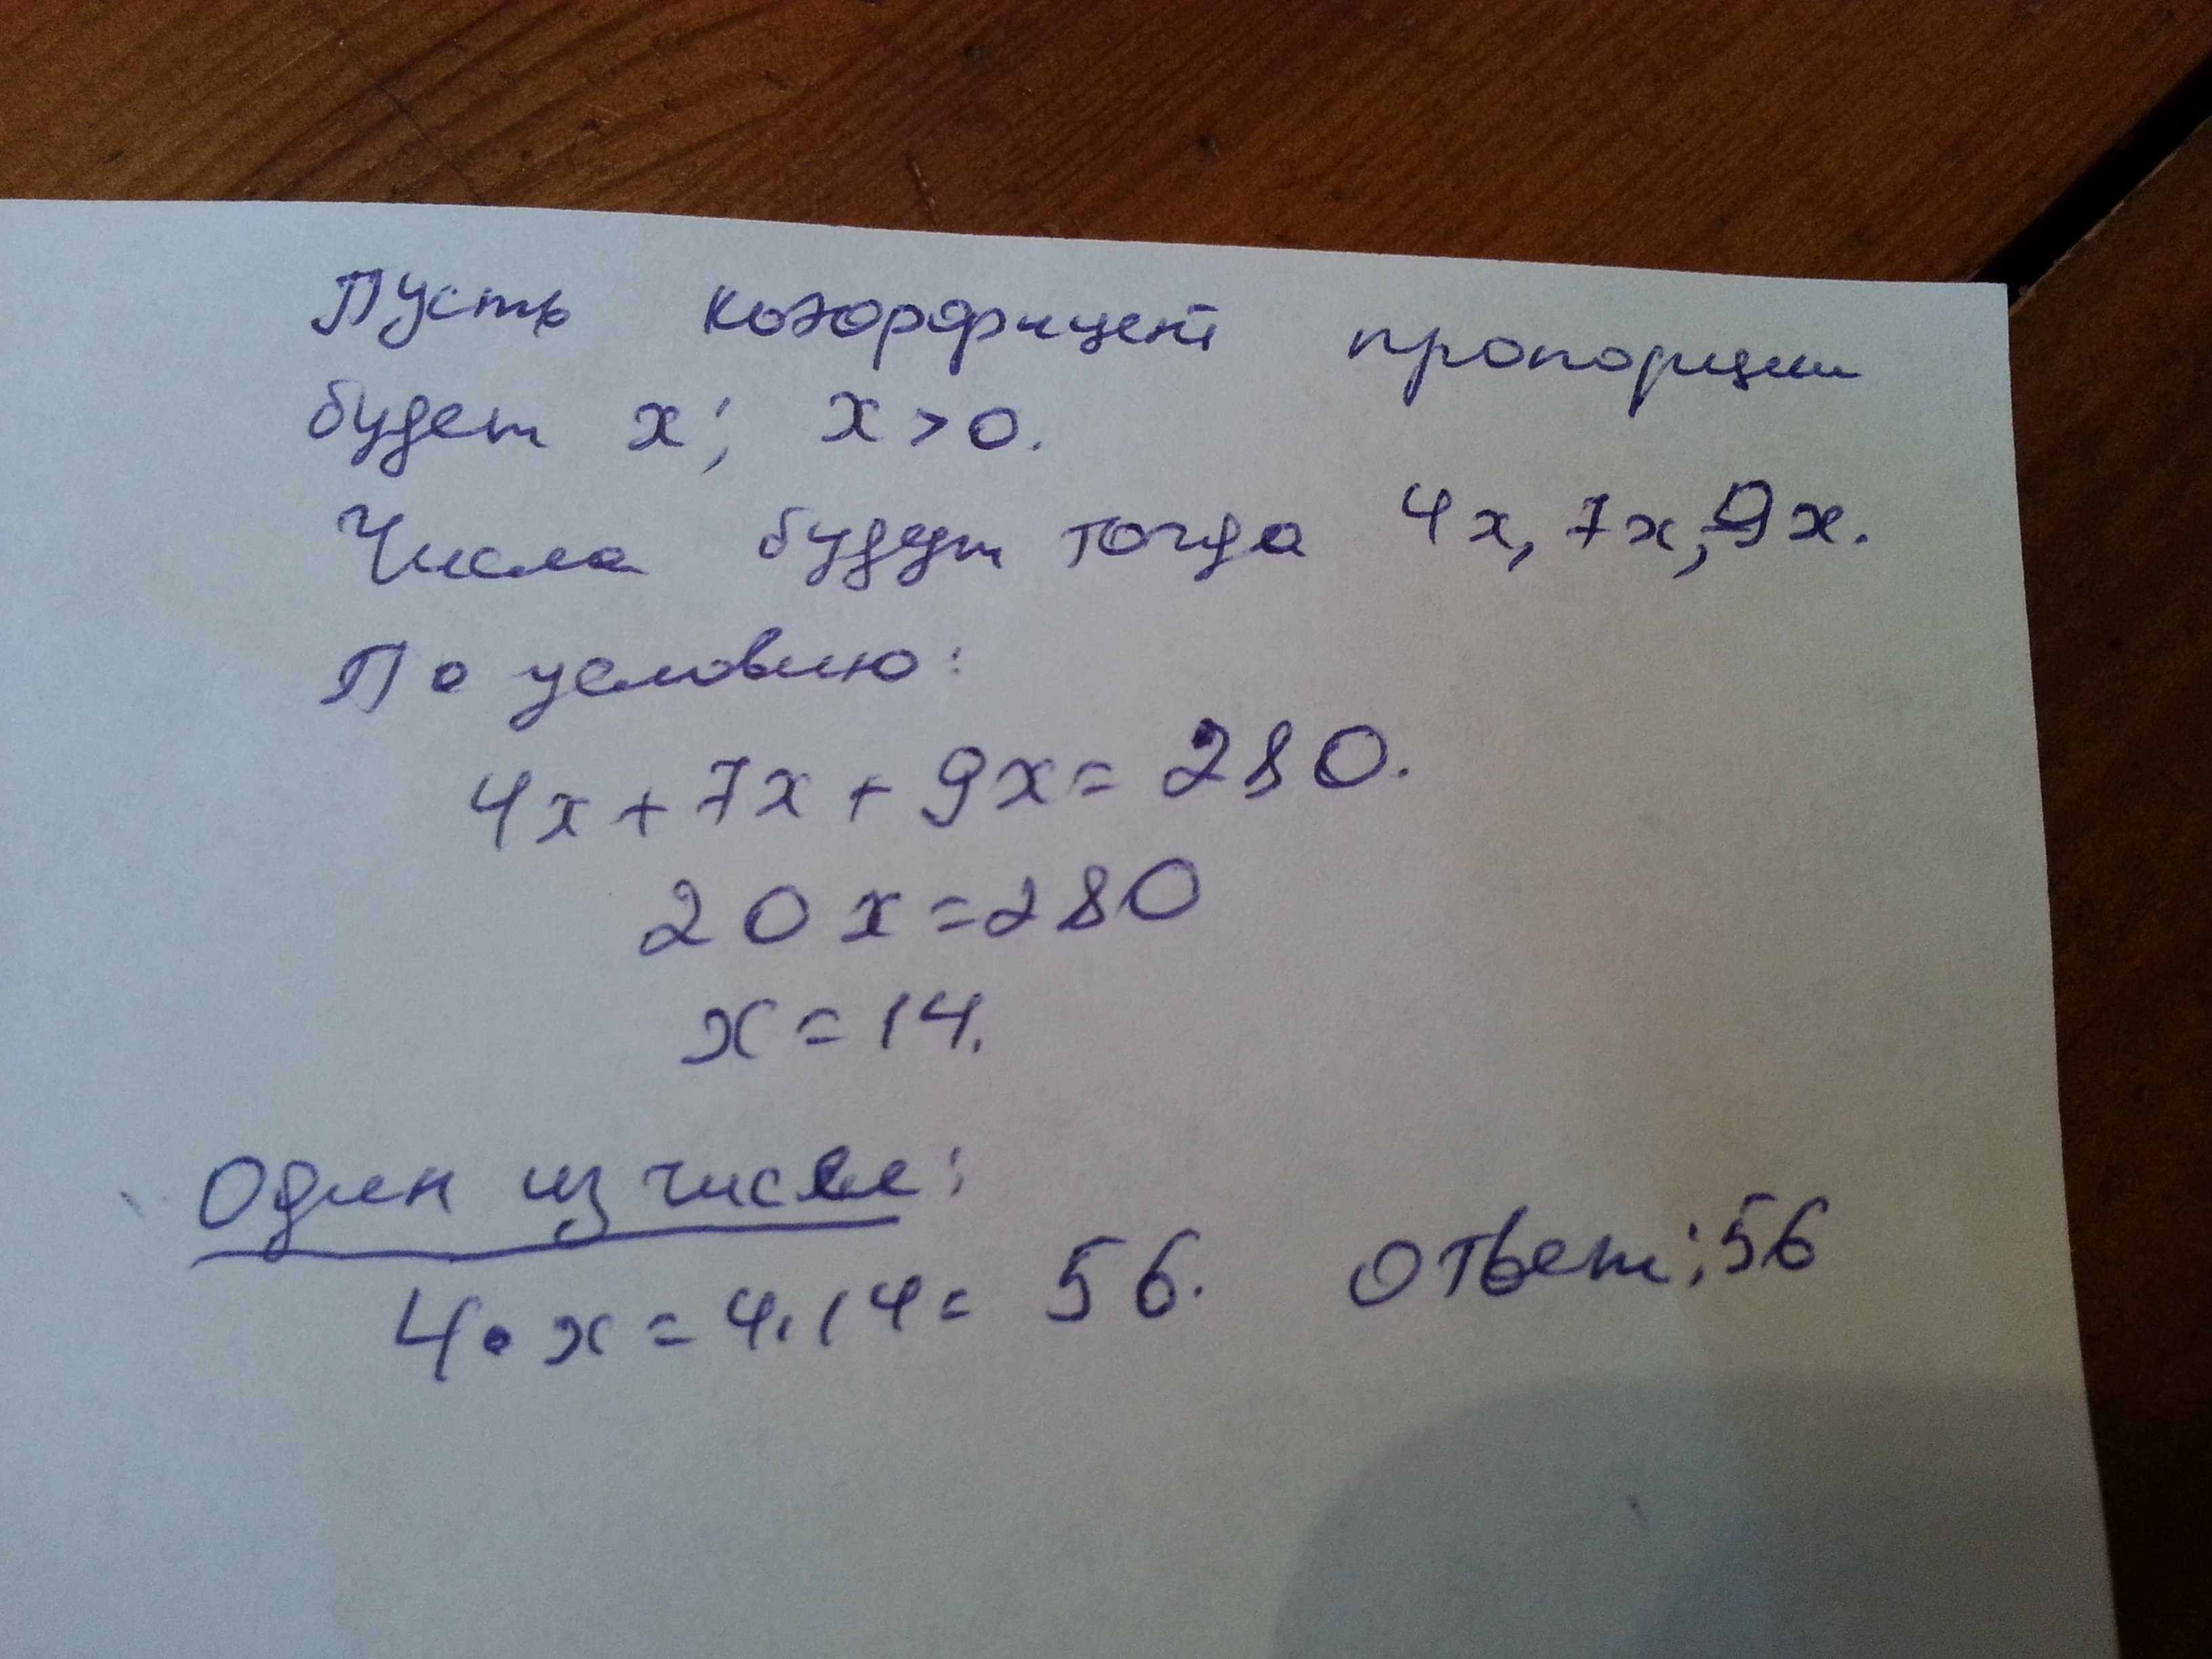 Пусть коэффициент пропорции
будет x; x > 0.
Числа будут тогда 4x, 7x, 9x.
По условию:
4x + 7x + 9x = 280.
20x = 280
x = 14.
Один из чисел:
4 • x = 4 · 14 = 56. Ответ: 56